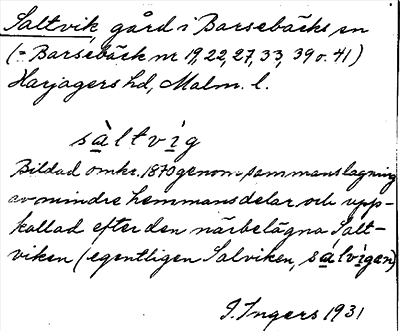 Saltvik, gård i Barsebäcks sn
(= Barsebäck nr 19, 22, 27, 33, 39 o. 41)
Harjagers hd, Malm. l.
sàltvìg
Bildad omkr. 1870 genom sammanslagning
av mindre hemmansdelar och upp-
kallad efter den närbelägna Salt-
viken (egentligen Salviken, sàlvìgen)
I. Ingers 1931